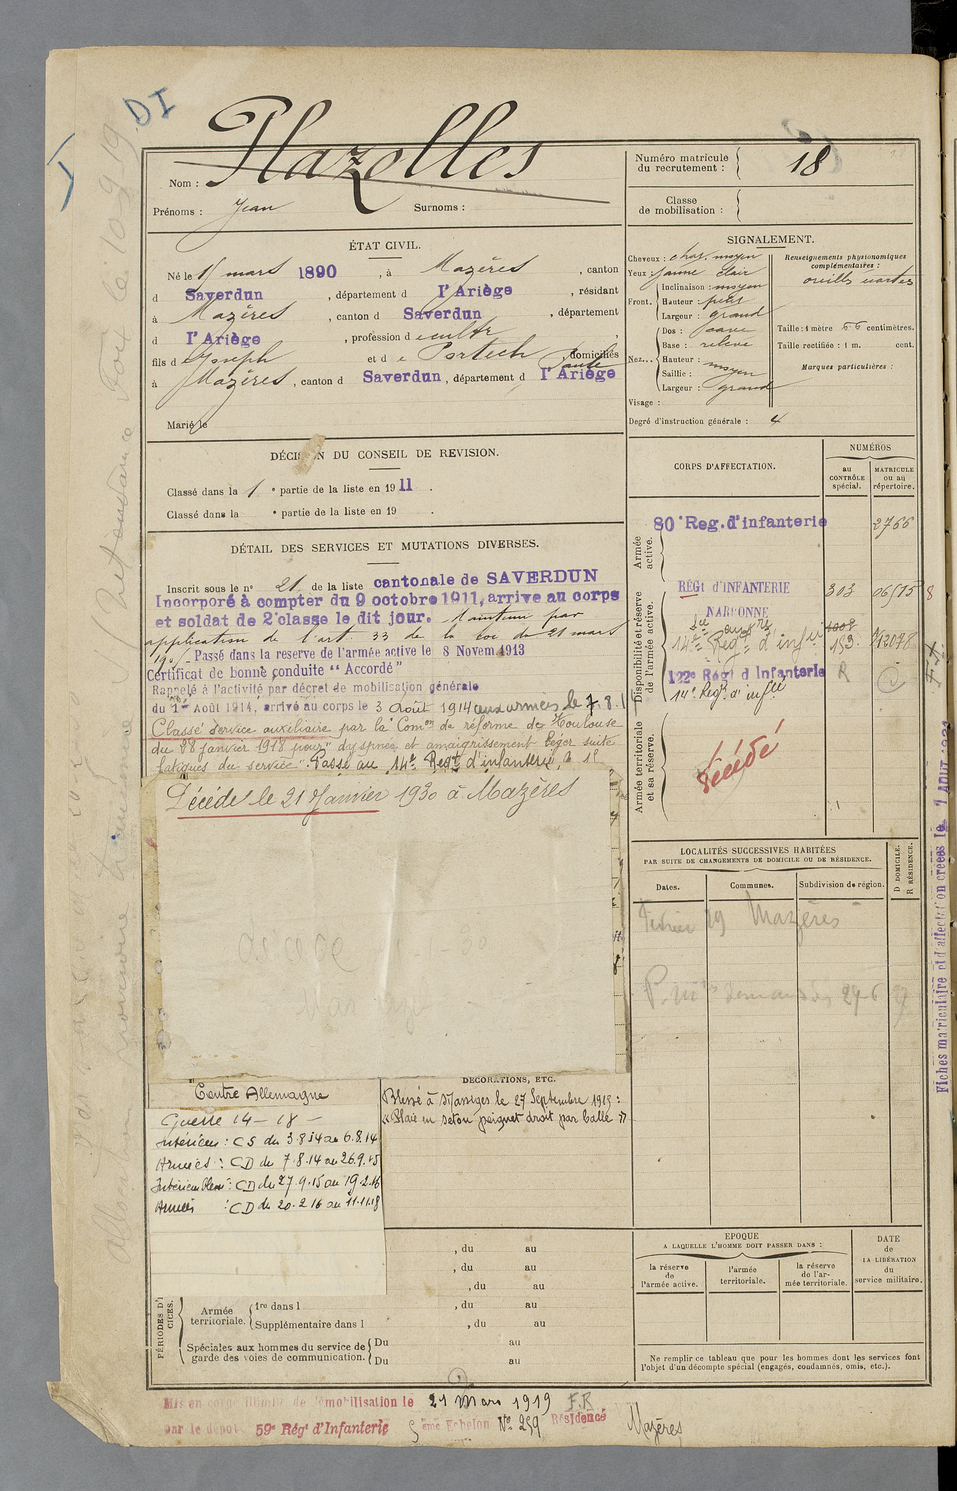 DI
I
Nom : Plazolles
Prénoms : Jean Surnoms :
Numéro matricule du recrutement : 18
Classe de mobilisation :
ÉTAT CIVIL.
Né le 15 mars 1890, à Mazères, canton
d Saverdun, département d l'Ariège, résidant
à Mazères, canton d Saverdun, département
d l'Ariège, profession de cultr
fils de Joseph et de Portech domiciliés
à Mazères, canton d Saverdun, département d l'Ariège
Marié le
SIGNALEMENT.
Cheveux : chat. moyen
Yeux : jaune clair
Front. Inclinaison : moyen
Hauteur : petit
Largeur : grand
Nez... Dos :
Base : relevé
Hauteur :
Saillie : moyen
Largeur : grand
Visage :
Renseignements physionomiques complémentaires :
Taille : 1 mètre 66 centimètres.
Taille rectifiée : 1 m. cent.
Marques particulières :
Degré d'instruction générale : 4
DÉCISION DU CONSEIL DE REVISION.
Classé dans la 1e partie de la liste en 1911.
Classé dans la e partie de la liste en 19 .
DÉTAIL DES SERVICES ET MUTATIONS DIVERSES.
Inscrit sous le n° 21 de la liste cantonale de SAVERDUN
Incorporé à compter du 9 octobre 1911, arrive au corps
et soldat de 2e classe le dit jour. Maintenu par
application de l'art. 33 de la loi du 21 mars
1905 Passé dans la reserve de l'armée active le 8 Novem. 1913
Certificat de bonne conduite "Accordé"
Rappelé à l'activité par décret de mobilisation générale
du 1er Août 1914, arrivé au corps le 3 Août 1914 aux armées le 7.8.1
Classé service auxiliaire par la Comon de réforme de Toulouse
du 28 janvier 1918 pour "dyspnée et amaigrissement léger suite
fatigues du service". Passé au 14e Regt d'infanterie, le 15
Décédé le 21 Janvier 1930 à Mazères
CORPS D'AFFECTATION.
NUMÉROS
au CONTRÔLE spécial.
MATRICULE ou au répertoire.
Armée active.
80e Reg. d'infanterie 2766
Disponibilité et réserve de l'armée active.
REGt d'INFANTERIE 303 06515 8
NARBONNE
14e Regt d'infie 153
122e Régt d'Infanterie R
14e Regt d'infie
Armée territoriale et sa réserve.
Décédé
LOCALITÉS SUCCESSIVES HABITÉES
PAR SUITE DE CHANGEMENTS DE DOMICILE OU DE RÉSIDENCE.
Dates. Communes. Subdivision de région. D DOMICILE. R RÉSIDENCE.
Février 19 Mazères
Contre Allemagne
Guerre 14-18
Intérieur : CS du 3.8.14 au 6.8.14
Armées : CD du 7.8.14 au 26.9.15
Intérieur Blessé : CD du 27.9.15 au 19.2.16
Armées : CD du 20.2.16 au 11.11.18
DÉCORATIONS, ETC.
Blessé à Massiges le 27 Septembre 1915 :
« Plaie en seton poignet droit par balle »
, du au
, du au
, du au
PÉRIODES D'EXERCICES.
Armée territoriale. 1re dans l , du au
Supplémentaire dans l , du au
Spéciales aux hommes du service de garde des voies de communication. Du au
Du au
EPOQUE
A LAQUELLE L'HOMME DOIT PASSER DANS :
la réserve de l'armée active.
l'armée territoriale.
la réserve de l'armée territoriale.
DATE de LA LIBÉRATION du service militaire.
Ne remplir ce tableau que pour les hommes dont les services font
l'objet d'un décompte spécial (engagés, condamnés, omis, etc.).
Mis en congé illimité de démobilisation le 21 Mars 1919 F.R
par le dépôt 59e Régt d'Infanterie 5 eme Echelon N° 259 Résidence Mazères
Fiches matriculaire et d'affectation créées le 1 AOUT